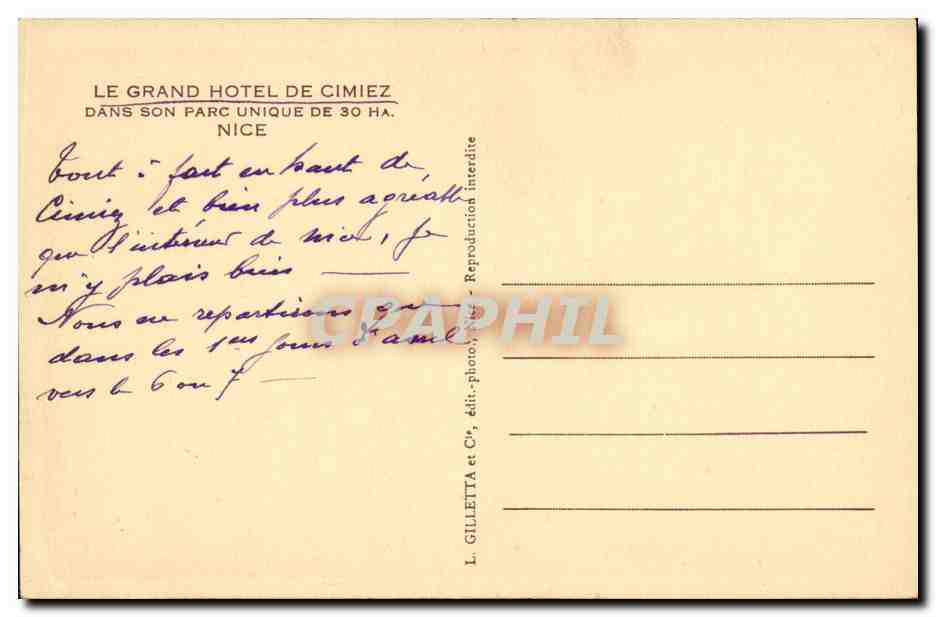 LE GRAND HOTEL DE CIMIEZ
DANS SON PARC UNIQUE DE 30 HA.
NICE
Tout à fait en haut de
Cimiez et bien plus agréable
que l'intérieur de Nice, je
m'y plais bien —
Nous ne repartirons que
dans les 1ers jours d'avril
vers le 6 ou 7 —
L. GILLETTA et Cie, édit.-photo., Nice - Reproduction interdite
CPAPHIL